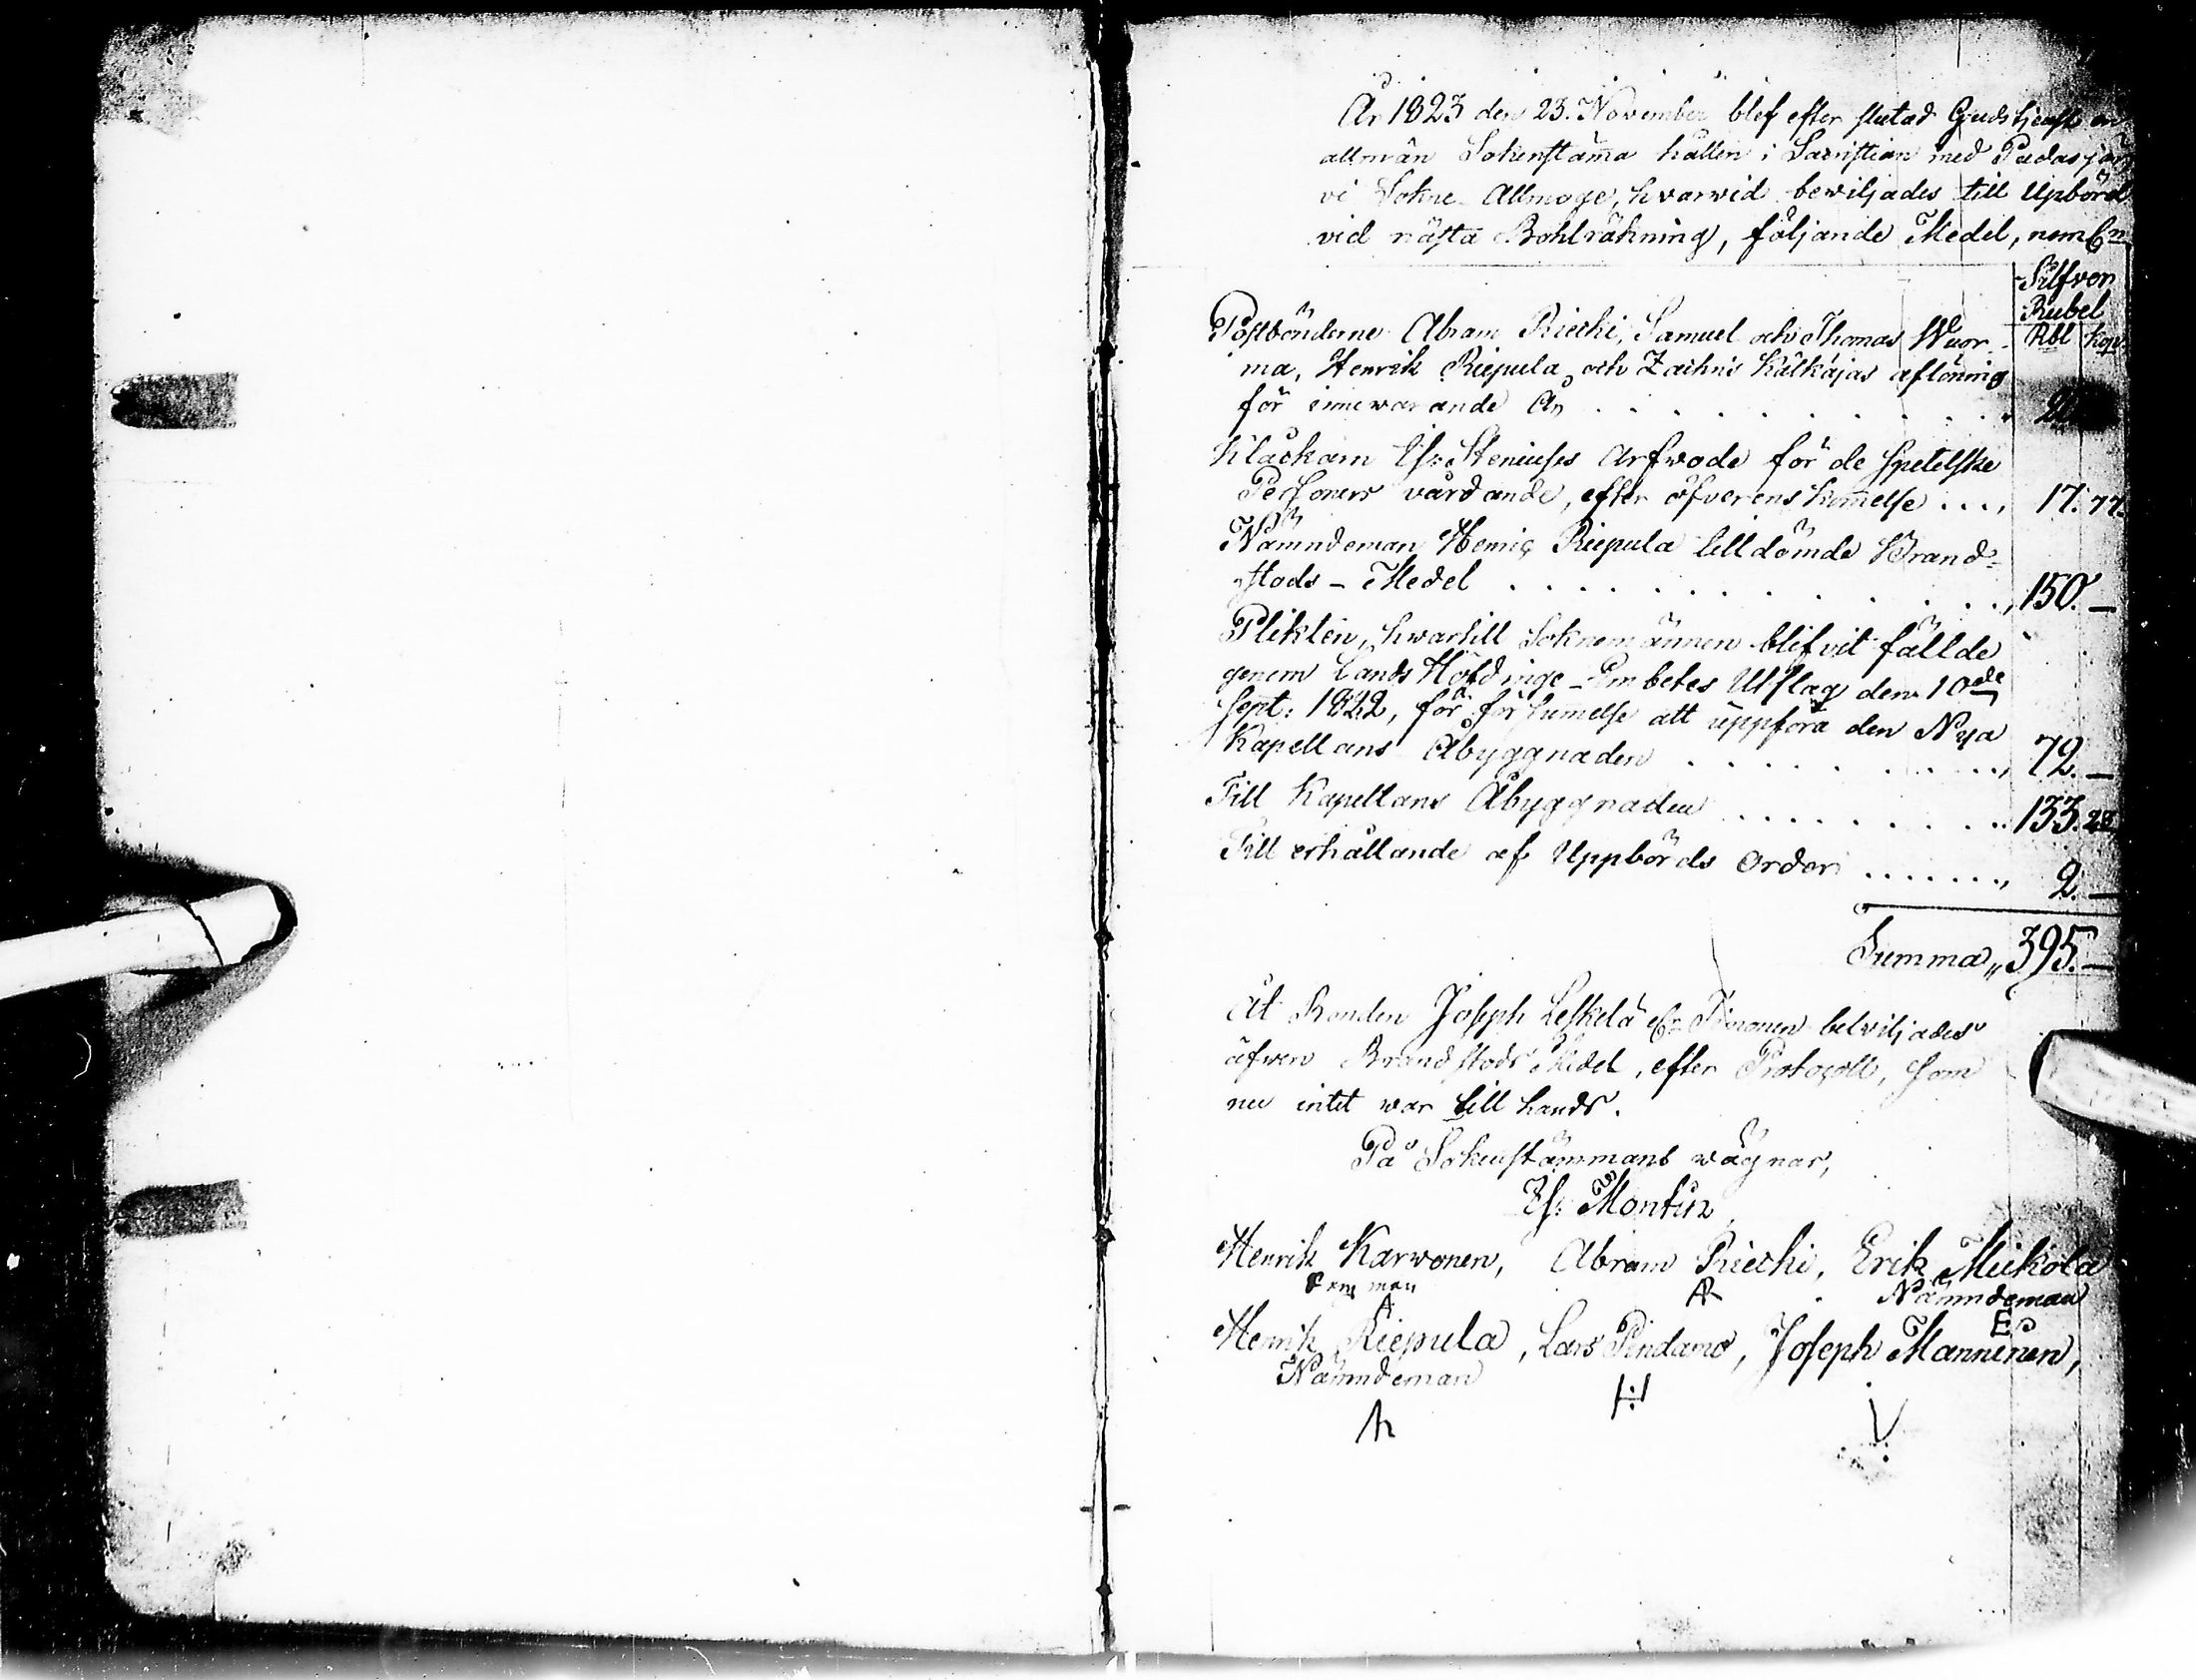 År 1823 den 23. November blef efter slutad Gudstjenst en
allmän Sokenstam̄a hållen i Sacristian med Pudasjär
vi Sokne Allmoge, hvarwid bewiljades till Upbörd
vid nästa Bohlräkning, följande Medel, neml:n
Silfver
Rubel
Rbl kop:
Postbönderne Abram Riecki, Samuel och Thomas Wuor-
ma, Henrik Riepula och Zachris Kälkäjas aflöning
för innewarande År
Klåckarn Es: Steniuses Arfwode för de spetelske
Personers vårdande, efter öfverenskom̄else ... 17. 77.
Nämndeman Henric Riepula tilldömde Brand-
stods-Medel . . . . 150. —
Plikten, hwartill Soknemännen blifvit fällde
genom Lands Höfdinge-Embetes Utslag den 10de
Sept: 1822, för försum̄else att uppföra den Nya
Kapellans Åbyggnaden . . . . 72. —
Till Kapellans Åbyggnaden . . . . 133. 23
Till erhållande af Uppbörds Order ....... 2. —
Summa 395. —
Åt Bonden Joseph Leskelä bewiljades
äfwen Brandstods Medel, efter Protocoll, som
nu intet war till hands.
På Sokenstämmans wägnar,
Es: Montin
Henrik Karwonen, Abram Riecki, Erik Mickola
A AR Nämndeman
E
Henrik Riepula, Lars Pindamo, Joseph Manninen,
Nämndeman
h